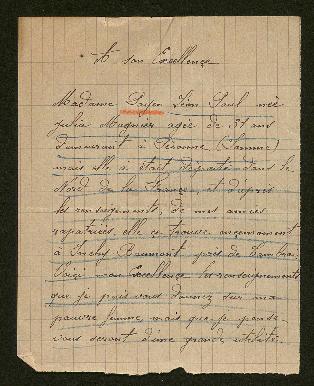 A son Excellence
Madame Payen Léon Paul née
Julia Magnier agée de 31 ans
demeurant à Péronne (Somme)
mais elle a était déportée dans le
Nord de la France, et d'après
les renseignements, de mes amies
rapatriées, elle ce trouve encemoment
à Inchy Beaumont près de Cambrai.
Voici mon Excellence les renseignements
que je puis vous donner sur ma
pauvre femme mais que je pense
vous seront d'une grande utilité.